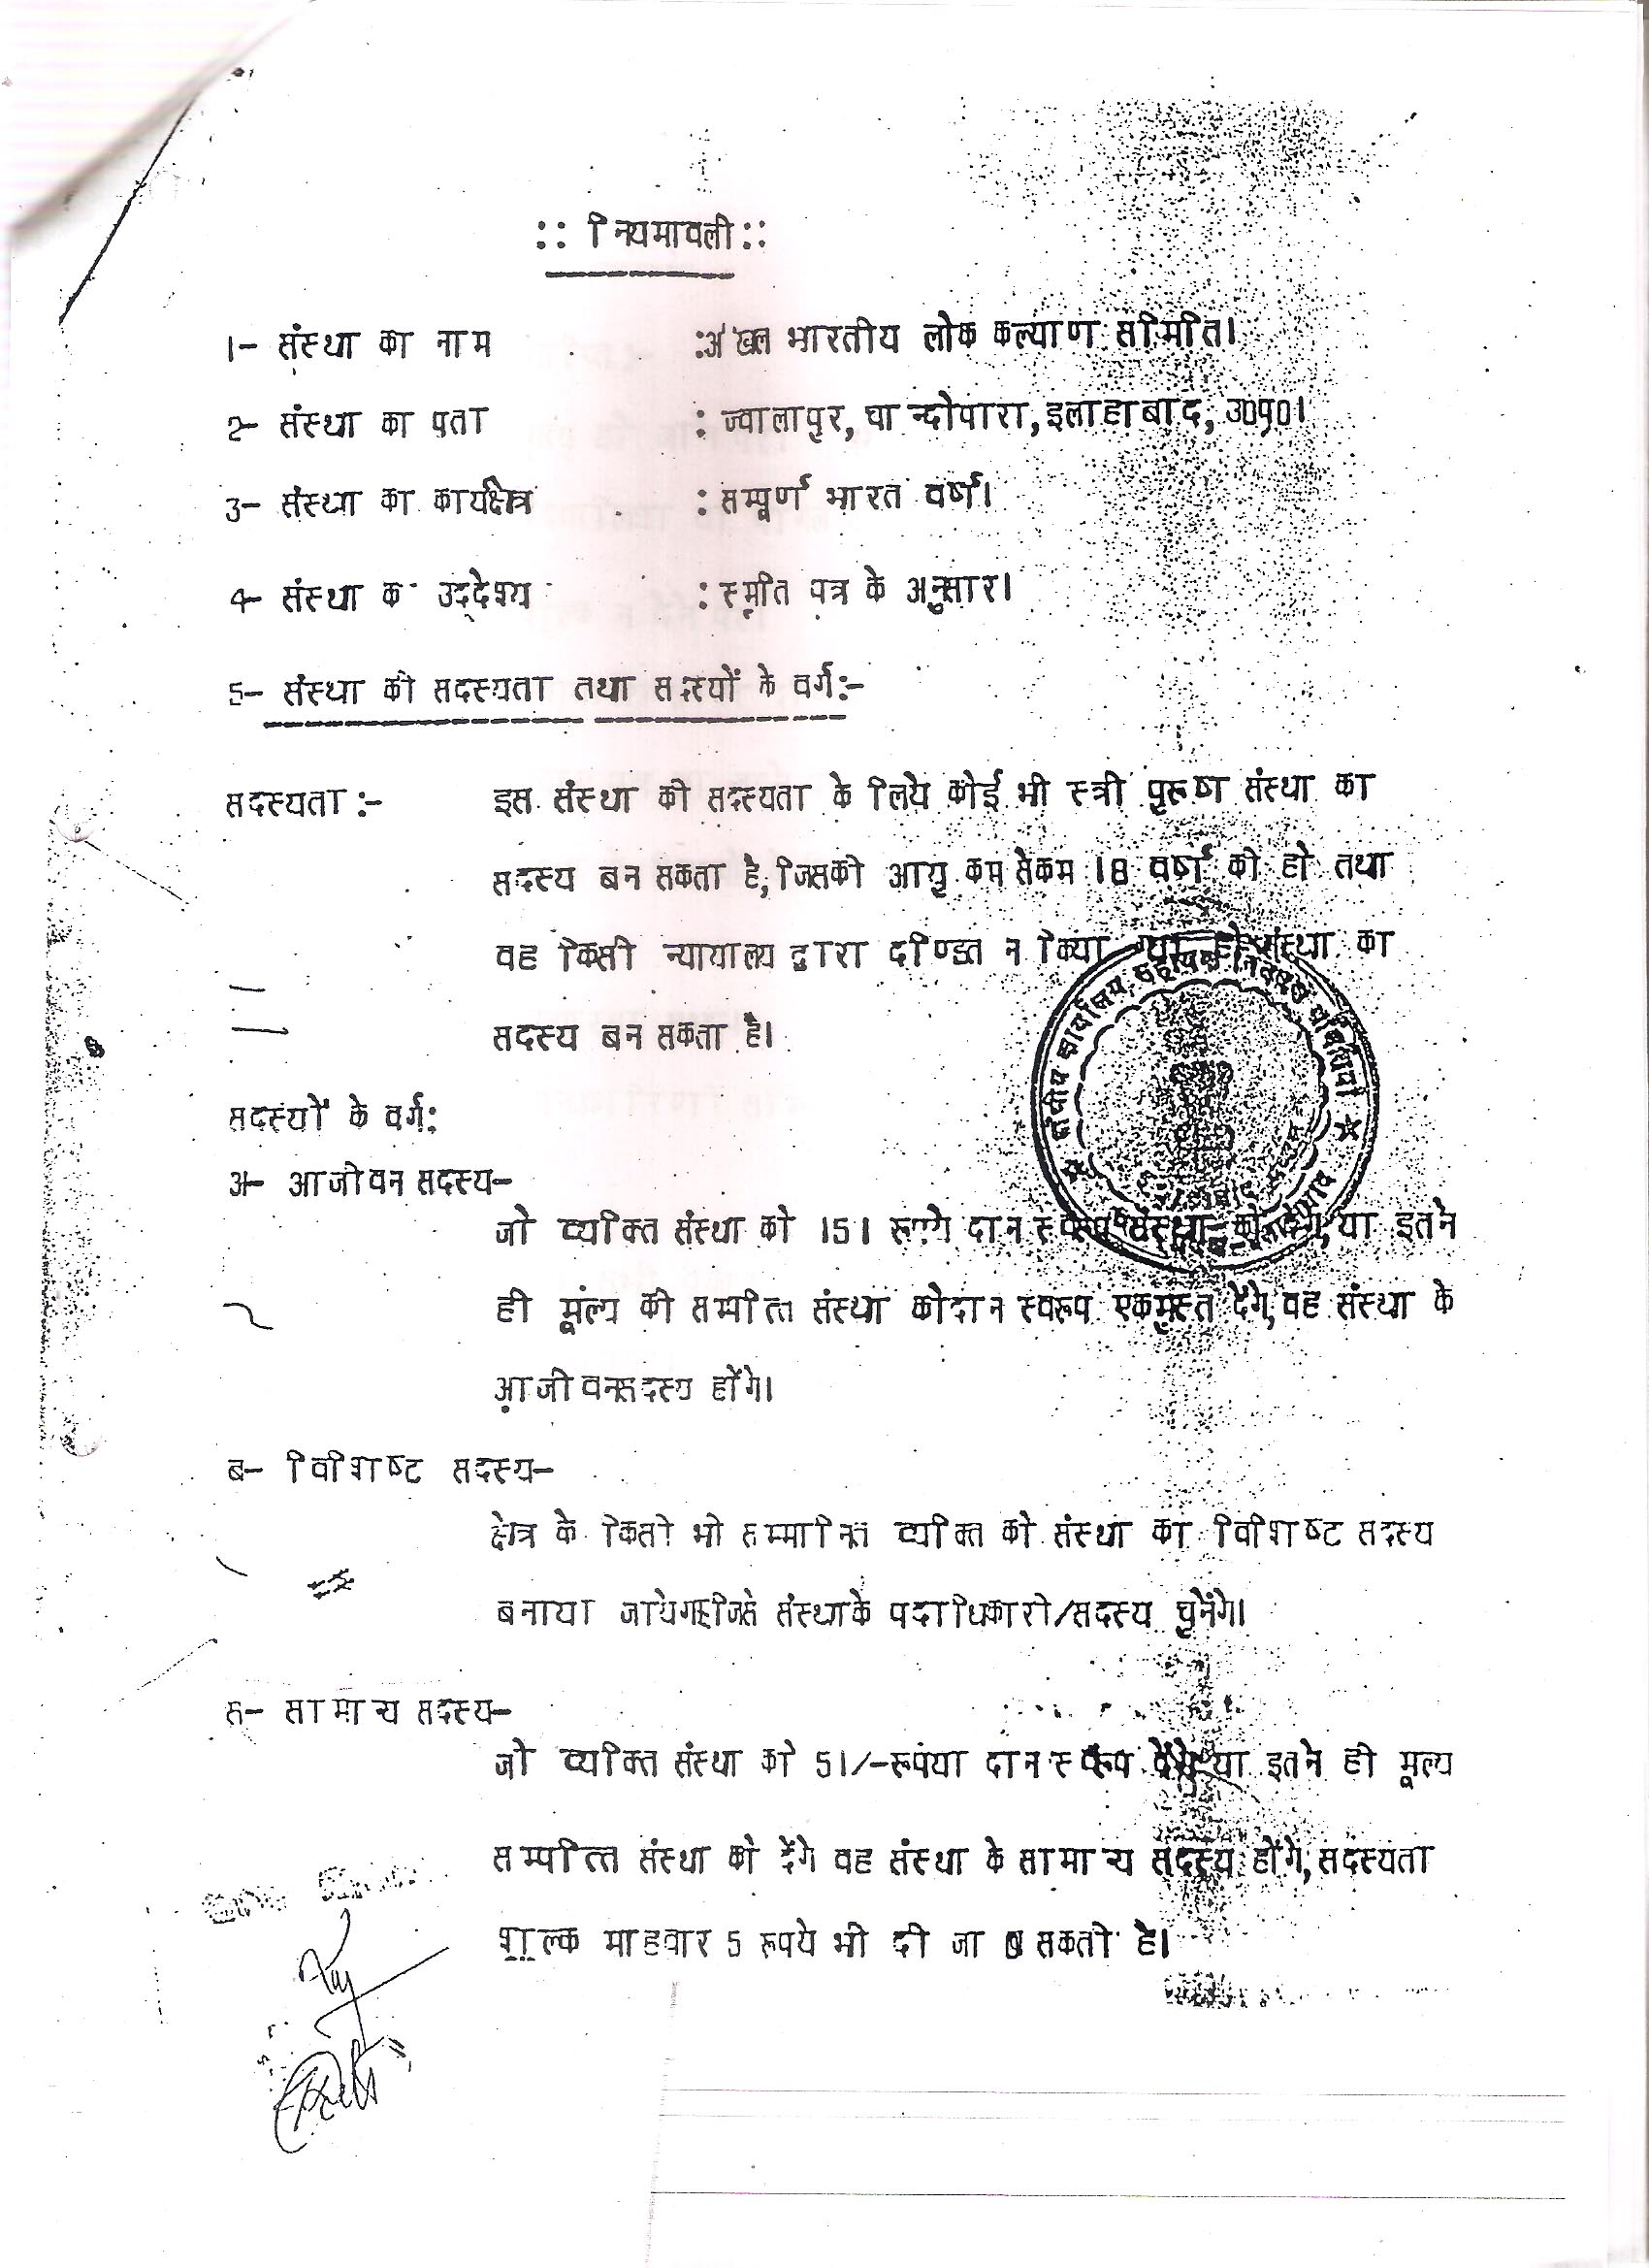 :: नियमावली ::
1- संस्था का नाम :अखिल भारतीय लोक कल्याण समिति।
2- संस्था का पता : ज्वालापुर, घान्दोपारा, इलाहाबाद, उ0प्र0।
3- संस्था का कार्यक्षेत्र : सम्पूर्ण भारत वर्ष।
4- संस्था के उद्देश्य : स्मृति पत्र के अनुसार।
5- संस्था की सदस्यता तथा सदस्यों के वर्ग:-
सदस्यता :- इस संस्था की सदस्यता के लिये कोई भी स्त्री पुरूष संस्था का
सदस्य बन सकता है, जिसकी आयु कम सेकम 18 वर्ष की हो तथा
वह किसी न्यायालय द्वारा दण्डित न किया गया हो संस्था का
सदस्य बन सकता है।
सदस्यों के वर्ग:
अ- आजीवन सदस्य-
जो व्यक्ति संस्था को 151 रूपये दान स्वरूप संस्था को देंगे, या इतने
ही मूल्य की सम्पत्ति संस्था कोदान स्वरूप एकमुस्त देंगे, वह संस्था के
आजीवनसदस्य होंगे।
ब- विशिष्ट सदस्य-
क्षेत्र के किसी भी सम्मानित व्यक्ति को संस्था का विशिष्ट सदस्य
बनाया जायेगा जिसे संस्थाके पदाधिकारी/सदस्य चुनेंगे।
स- सामान्य सदस्य-
जो व्यक्ति संस्था को 51/-रूपया दान स्वरूप देंगे या इतने ही मूल्य
सम्पत्ति संस्था को देंगे वह संस्था के सामान्य सदस्य होंगे, सदस्यता
शुल्क माहवार 5 रूपये भी दी जा सकती है।